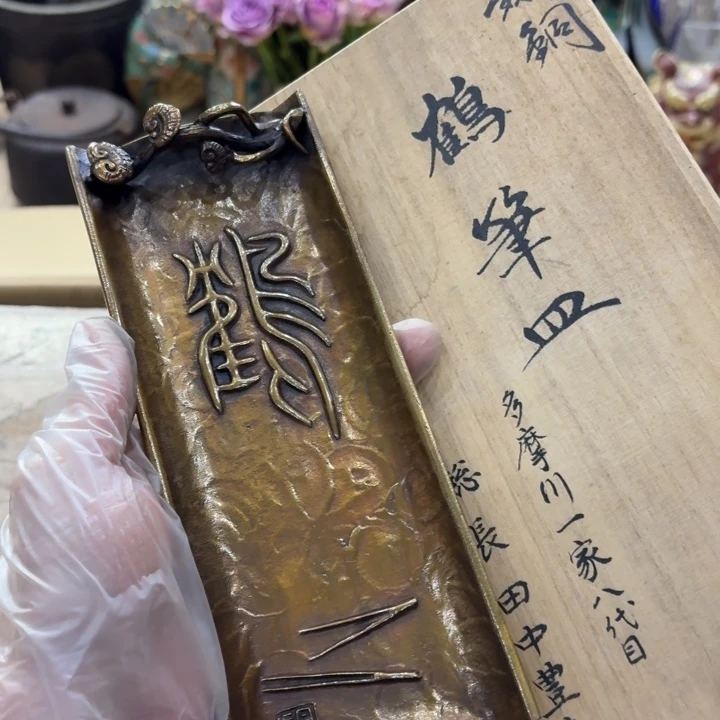 銅
鶴筆皿
多摩川一家八代目
総長田中豊
鶴